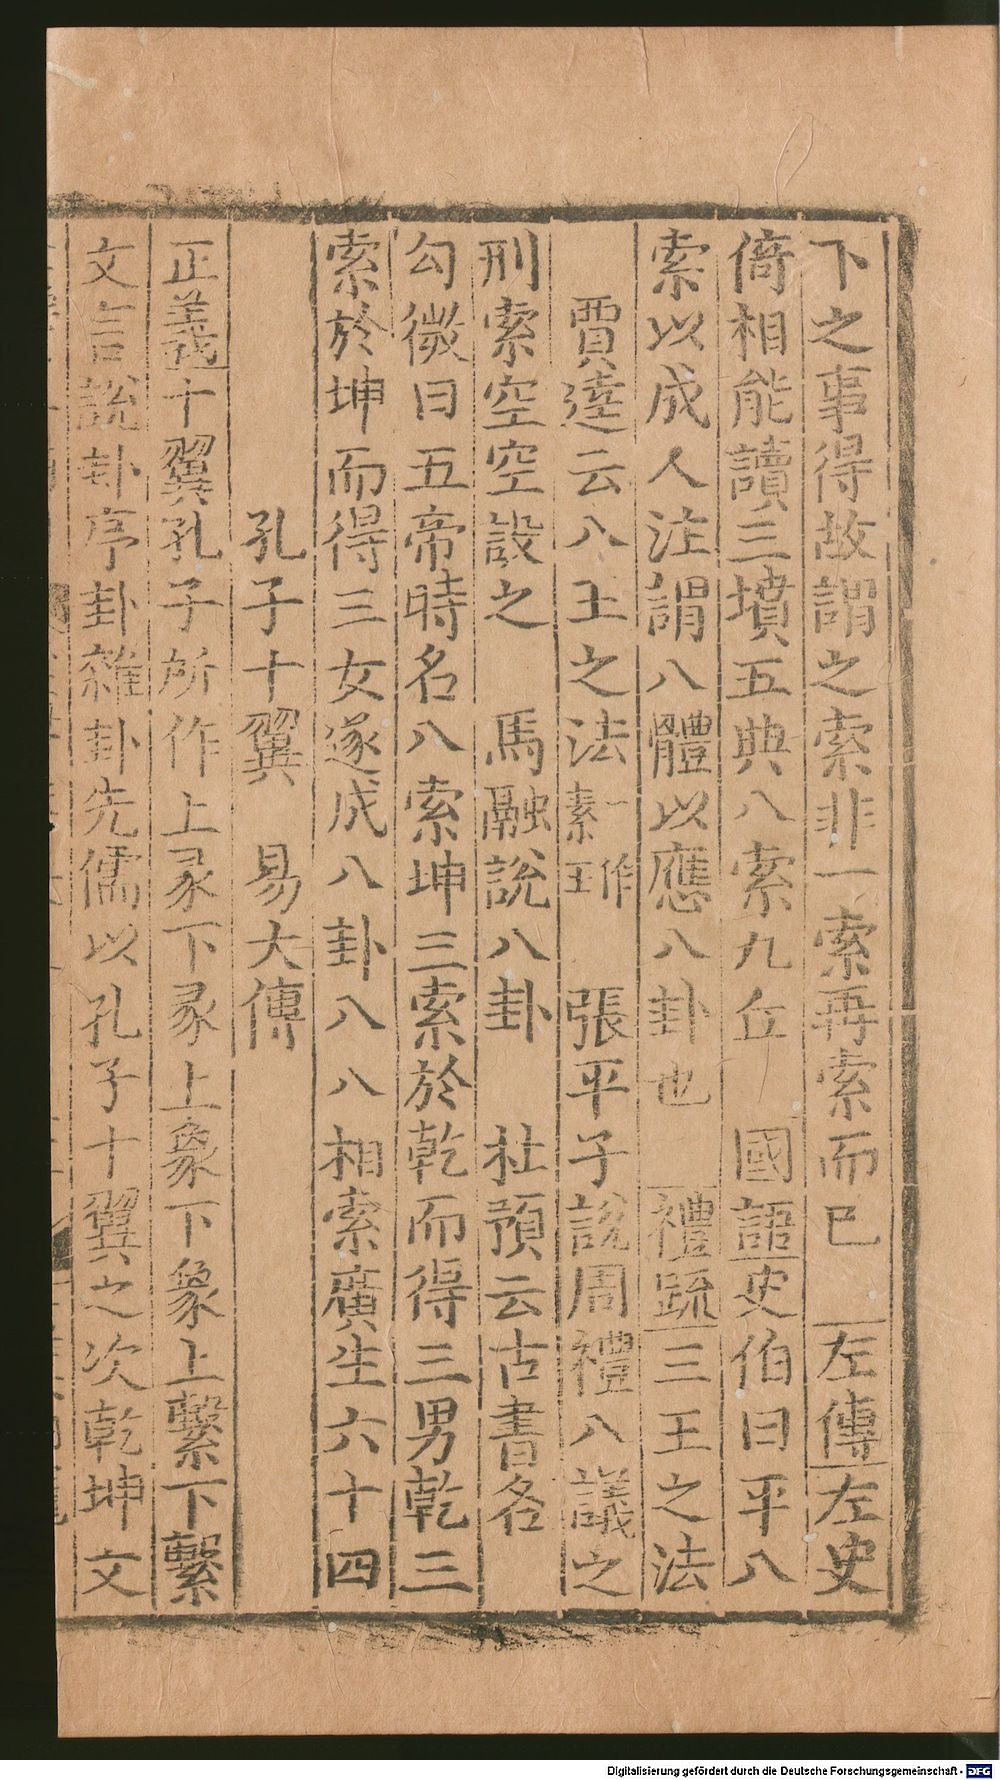 下之事得故謂之索非一索再索而已 左傳左史
倚相能讀三墳五典八索九丘 國語史伯曰平八
索以成人注謂八體以應八卦也 禮疏三王之法
賈逵云八王之法一作素王 張平子說周禮八議之
刑索空空設之 馬融說八卦 杜預云古書名
勾微曰五帝時名八索坤三索於乾而得三男乾三
索於坤而得三女遂成八卦八八相索廣生六十四
孔子十翼 易大傳
正義十翼孔子所作上彖下彖上象下象上繫下繫
文言說卦序卦雜卦先儒以孔子十翼之次乾坤文
Digitalisierung gefördert durch die Deutsche Forschungsgemeinschaft - DFG